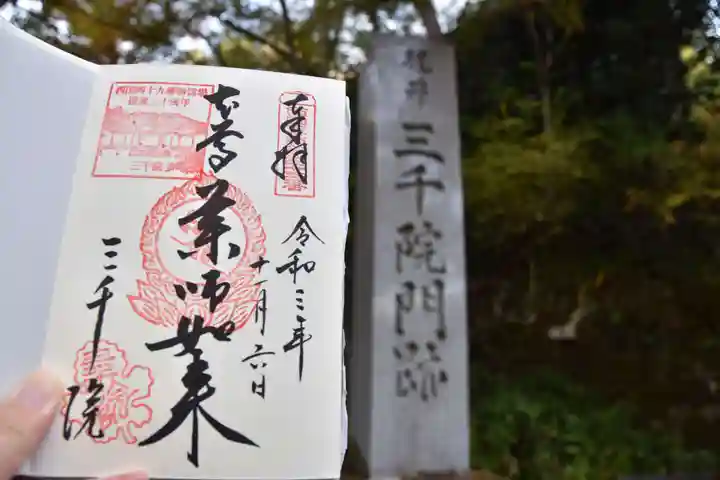 奉拝
令和三年
十一月六日
本尊薬師如来
三千院
西国四十九薬師霊場
三千院
梶井
三千院門跡